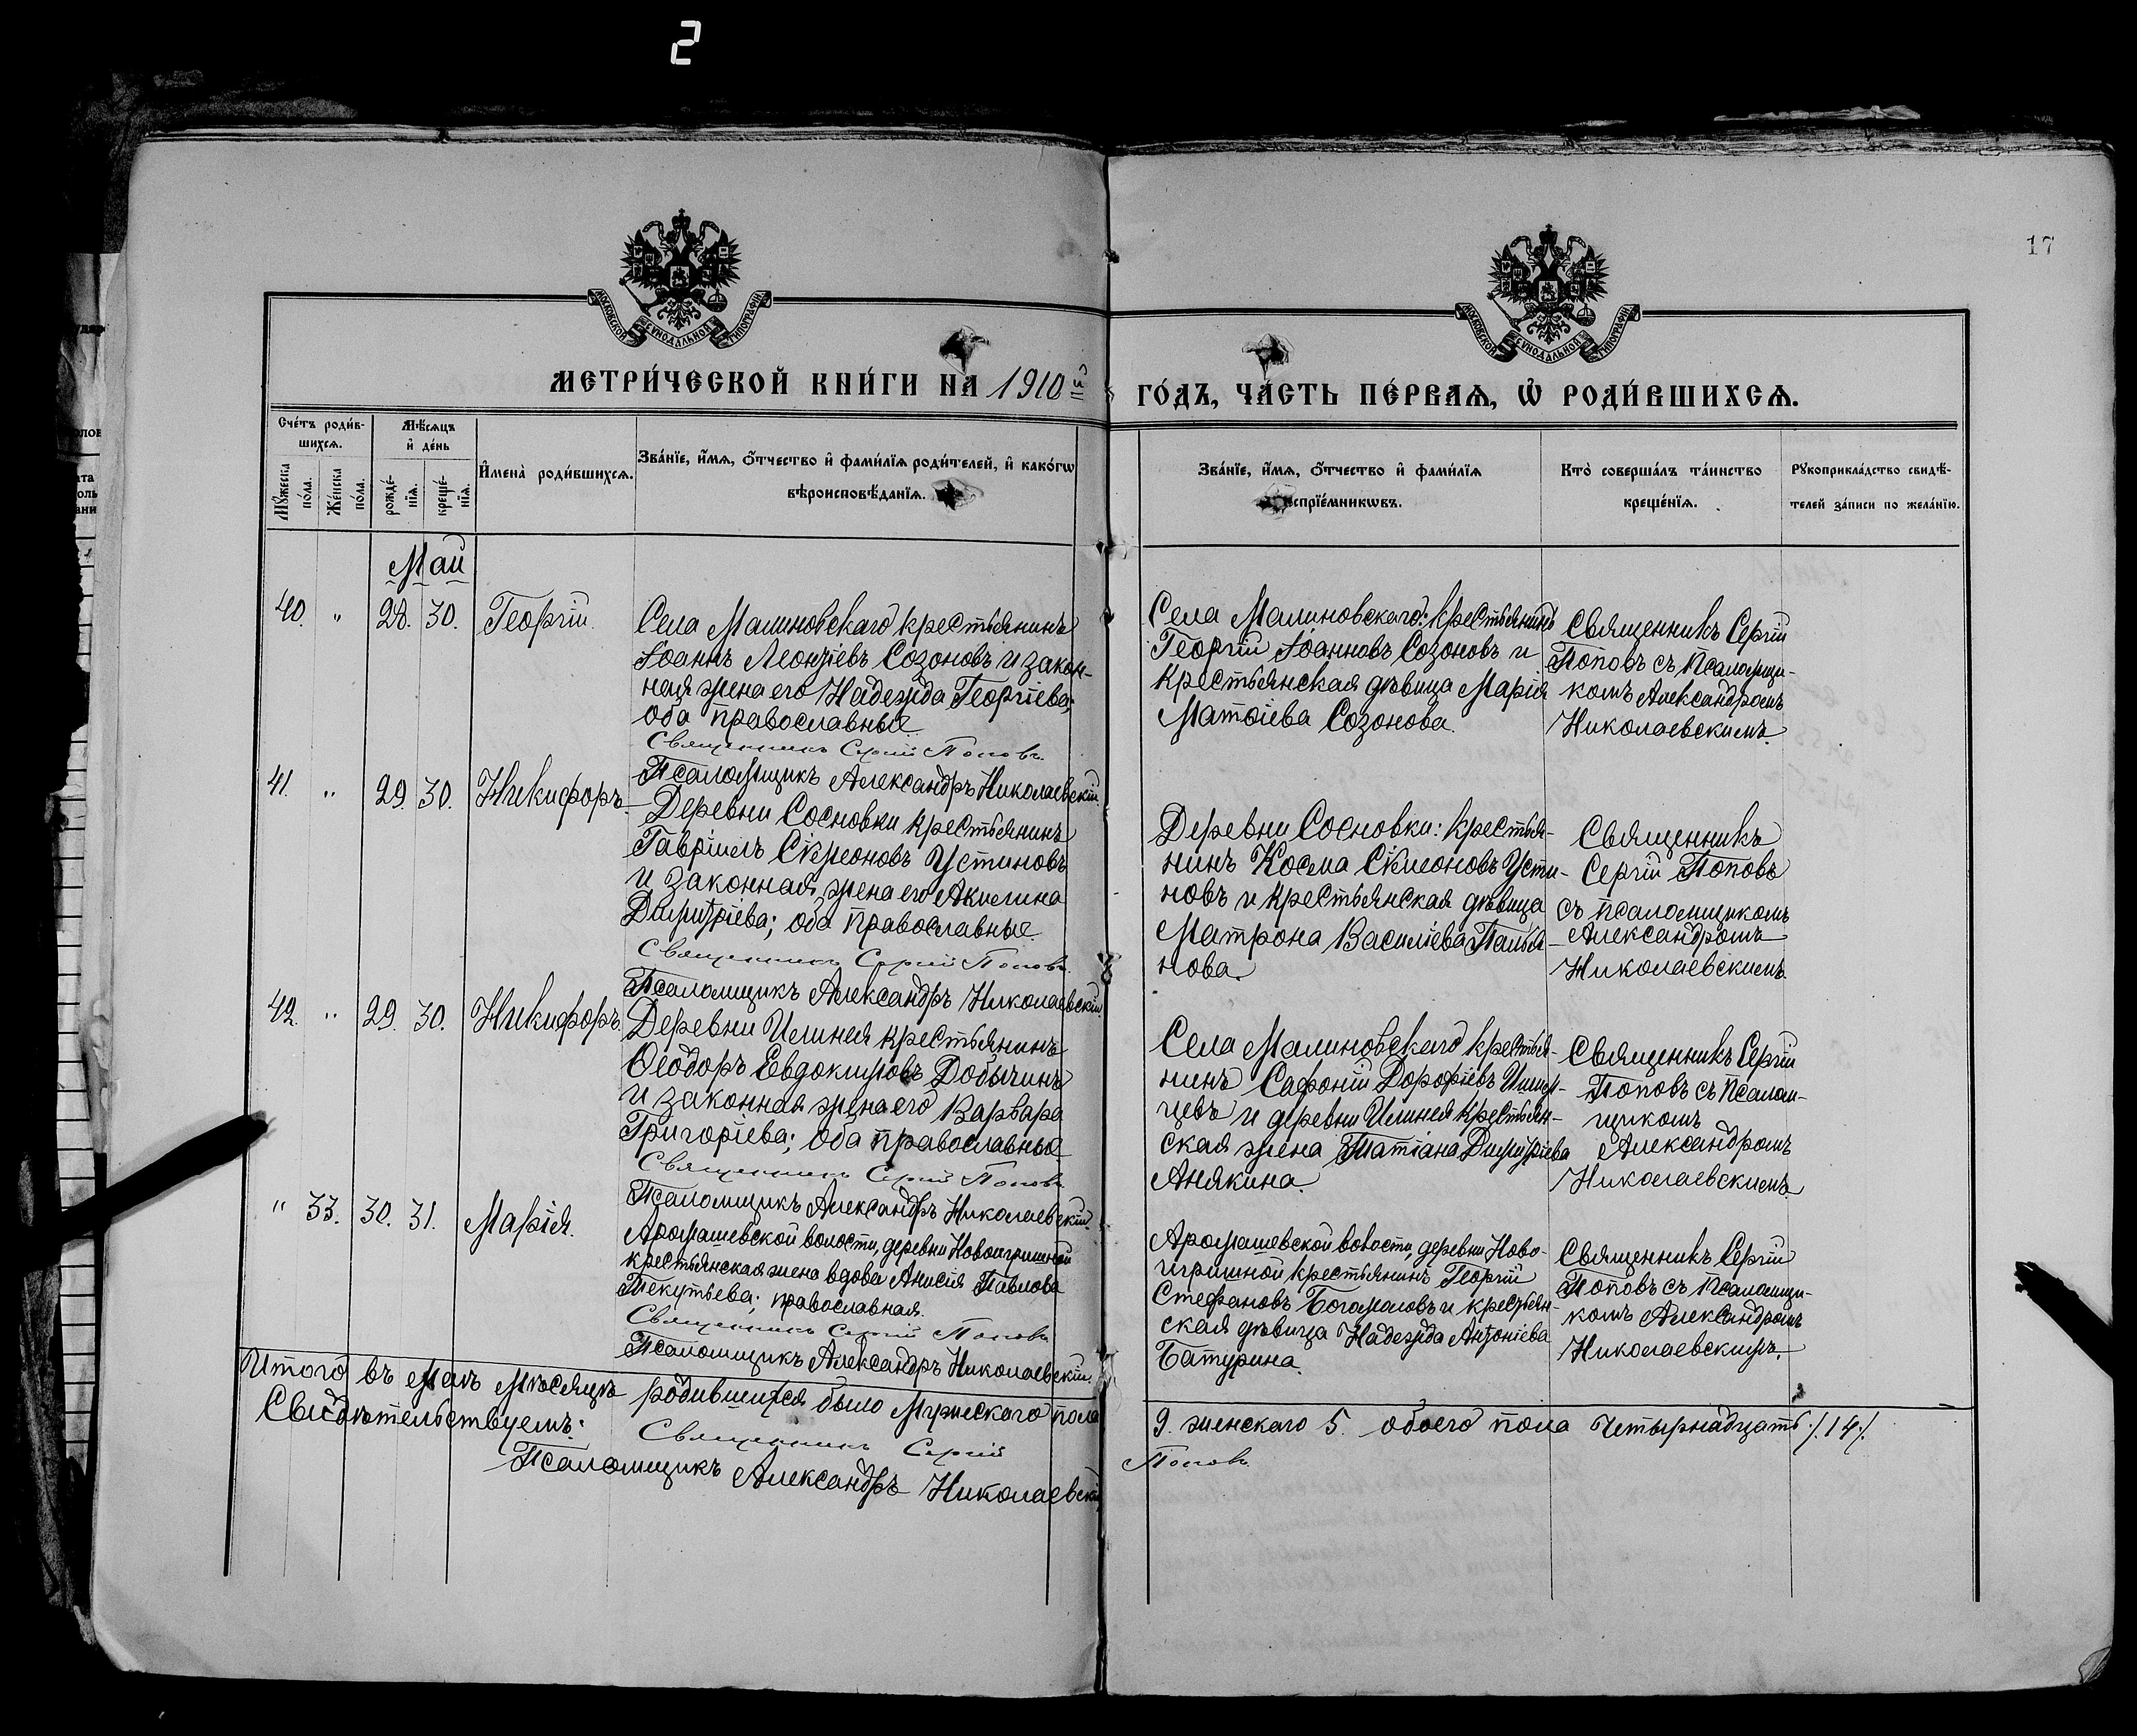 2
17
МОСКОВСКОЙ СѴНОДАЛЬНОЙ ТИПОГРАФІИ
МОСКОВСКОЙ СѴНОДАЛЬНОЙ ТИПОГРАФІИ
МЕТРИ́ЧЕСКОЙ КНИ́ГИ НА 1910й ГО́ДЪ, ЧА́СТЬ ПЕ́РВАѦ, Ѽ РОДИ́ВШИХСѦ.
Сче́тъ роди́в-
шихсѧ.
Мꙋ́жеска по́ла.
Же́нска по́ла.
Мѣ́сѧцъ
и҆ де́нь
рожде́-
нїѧ.
креще́-
нїѧ.
И҆мена̀ роди́вшихсѧ.
Зва́нїе, и҆́мѧ, ѻ҆́тчество и҆ фами́лїѧ роди́телей, и҆ како́гѡ
вѣроисповѣ́данїѧ.
Зва́нїе, и҆́мѧ, ѻ҆́тчество и҆ фами́лїѧ
спрїе́мникѡвъ.
Кто̀ соверша́лъ та́инство
креще́нїѧ.
Рꙋкоприкла́дство свидѣ́-
телей за́писи по жела́нїю.
Май
40. " 28. 30. Георгій.
Села Малиновскаго крестьянинъ
Іоаннъ Леонтіевъ Созоновъ и закон-
ная жена его Надежда Георгіева;
оба православные
Священникъ Сергій Поповъ.
Псаломщикъ Александръ Николаевскій.
Села Малиновскаго: крестьянинъ
Георгій Іоанновъ Созоновъ и
крестьянская дѣвица Марія
Матѳіева Созонова.
Священникъ Сергій
Поповъ съ Псаломщи-
комъ Александромъ
Николаевскимъ.
41. " 29. 30. Никифоръ.
Деревни Сосновки крестьянинъ
Гавріилъ Сѵмеоновъ Устиновъ
и законная жена его Акилина
Димитріева; оба православные.
Священникъ Сергій Поповъ.
Псаломщикъ Александръ Николаевскій.
Деревни Сосновки: крестья-
нинъ Косма Сѵмеоновъ Усти-
новъ и крестьянская дѣвица
Матрона Василіева Палья-
нова.
Священникъ
Сергій Поповъ
съ псаломщикомъ
Александромъ
Николаевскимъ.
42. " 29. 30. Никифоръ.
Деревни Илиней крестьянинъ
Ѳеодоръ Евдокимовъ Добычинъ
и законная жена его Варвара
Григоріева; оба православные
Священникъ Сергій Поповъ
Псаломщикъ Александръ Николаевскій.
Села Малиновскаго крестья-
нинъ Сафоній Дорофіевъ
цевъ и деревни Илиней крестьян-
ская жена Татіана Димитріева
Анякина.
Священникъ Сергій
Поповъ съ Псалом-
щикомъ
Александромъ
Николаевскимъ.
" 33. 30. 31. Марія.
Аромашевской волости, деревни Новоигришной
крестьянская жена вдова Анисія Павлова
Текутьева; православная.
Священникъ Сергій Поповъ
Псаломщикъ Александръ Николаевскій.
Аромашевской волости, деревни Ново-
игришной крестьянинъ Георгій
Стефановъ Богомоловъ и крестьян-
ская дѣвица Надежда Антоніева
Батурина.
Священникъ Сергій
Поповъ съ Псаломщи-
комъ Александромъ
Николаевскимъ.
Итого въ Маѣ мѣсяцѣ родившихся было мужескаго пола 9. женскаго 5. обоего пола четырнадцать /.14/.
Свидѣтельствуемъ:
Священникъ Сергій Поповъ
Псаломщикъ Александръ Николаевскій